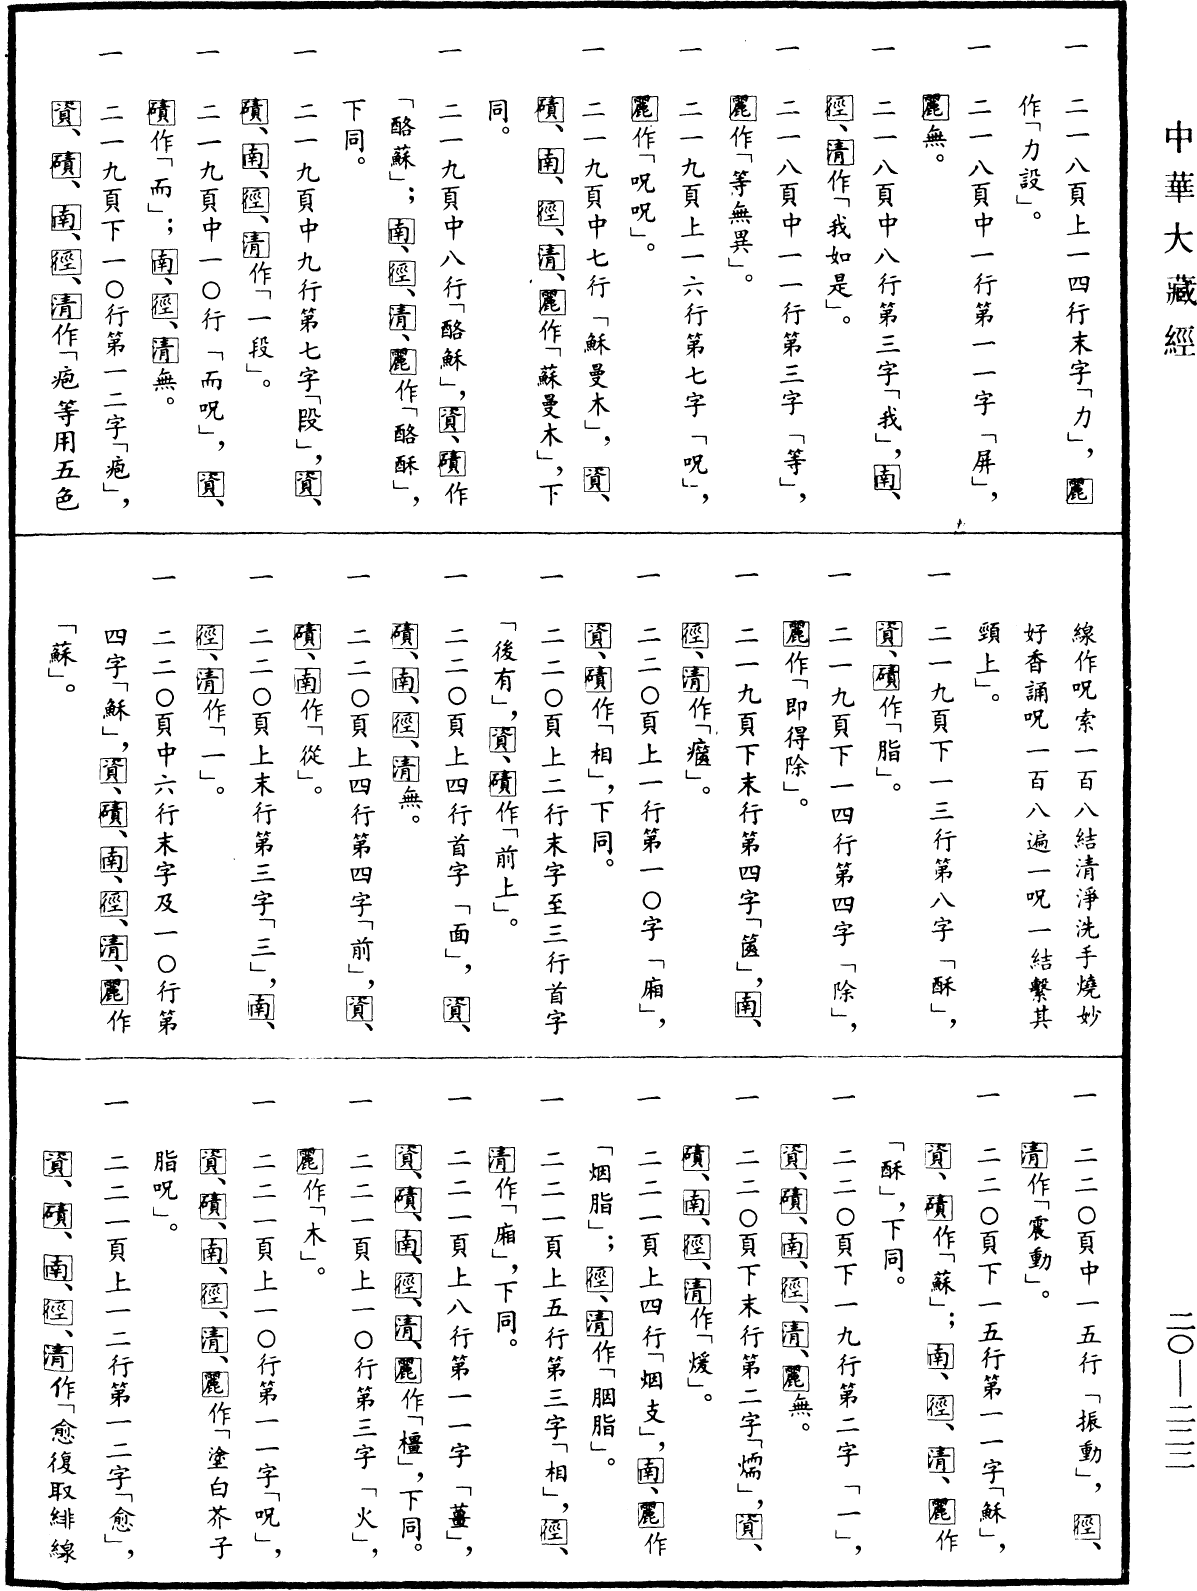 中華大藏經
一　二一八頁上一四行末字「力」，麗
作「力設」。
一　二一八頁中一行第一一字「屏」，
麗無。
一　二一八頁中八行第三字「我」，南、
徑、清作「我如是」。
一　二一八頁中一一行第三字「等」，
麗作「等無異」。
一　二一九頁上一六行第七字「呪」，
麗作「呪呪」。
一　二一九頁中七行「穌曼木」，資、
磧、南、徑、清、麗作「蘇曼木」，下
同。
一　二一九頁中八行「酪穌」，資、磧作
「酪蘇」；南、徑、清、麗作「酪酥」，
下同。
一　二一九頁中九行第七字「段」，資、
磧、南、徑、清作「一段」。
一　二一九頁中一〇行「而呪」，資、
磧作「而」；南、徑、清無。
一　二一九頁下一〇行第一二字「疱」，
資、磧、南、徑、清作「疱等用五色
線作呪索一百八結清淨洗手燒妙
好香誦呪一百八遍一呪一結繫其
頸上」。
一　二一九頁下一三行第八字「酥」，
資、磧作「脂」。
一　二一九頁下一四行第四字「除」，
麗作「即得除」。
一　二一九頁下末行第四字「篋」，南、
徑、清作「㾜」。
一　二二〇頁上一行第一〇字「廂」，
資、磧作「相」，下同。
一　二二〇頁上二行末字至三行首字
「後有」，資、磧作「前上」。
一　二二〇頁上四行首字「面」，資、
磧、南、徑、清無。
一　二二〇頁上四行第四字「前」，資、
磧、南作「從」。
一　二二〇頁上末行第三字「三」，南、
徑、清作「一」。
一　二二〇頁中六行末字及一〇行第
四字「穌」，資、磧、南、徑、清、麗作
「蘇」。
一　二二〇頁中一五行「振動」，徑、
清作「震動」。
一　二二〇頁下一五行第一一字「穌」，
資、磧作「蘇」；南、徑、清、麗作
「酥」，下同。
一　二二〇頁下一九行第二字「一」，
資、磧、南、徑、清、麗無。
一　二二〇頁下末行第二字「燸」，資、
磧、南、徑、清作「煖」。
一　二二一頁上四行「烟支」，南、麗作
「烟脂」；徑、清作「胭脂」。
一　二二一頁上五行第三字「相」，徑、
清作「廂」，下同。
一　二二一頁上八行第一一字「薑」，
資、磧、南、徑、清、麗作「橿」，下同。
一　二二一頁上一〇行第三字「火」，
麗作「木」。
一　二二一頁上一〇行第一一字「呪」，
資、磧、南、徑、清、麗作「塗白芥子
脂呪」。
一　二二一頁上一二行第一二字「愈」，
資、磧、南、徑、清作「愈復取緋線
二〇—二二二